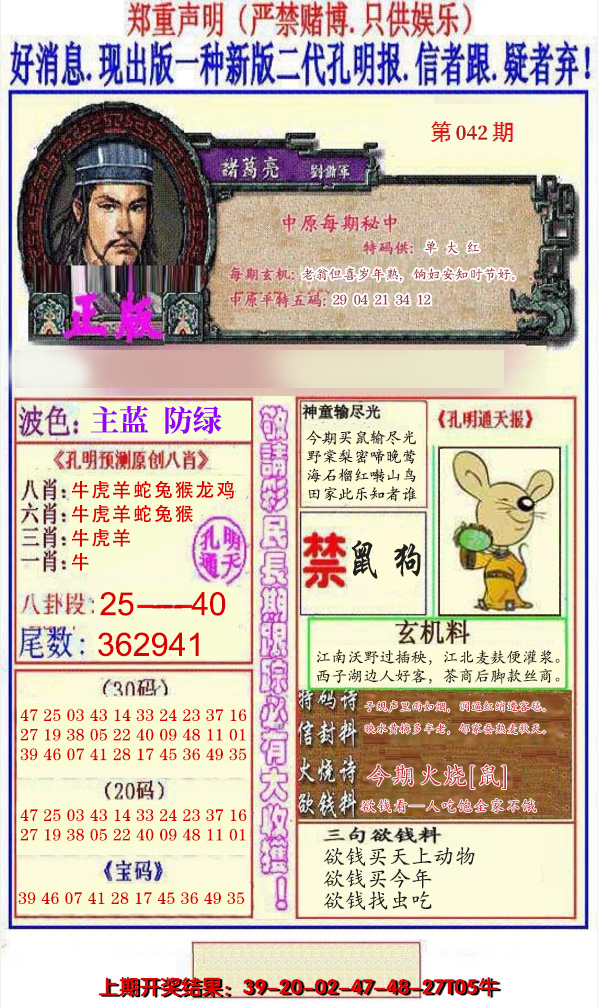 郑重声明（严禁赌博.只供娱乐）
好消息.现出版一种新版二代孔明报.信者跟.疑者弃！
第042期
諸葛亮 劉備軍
中原每期秘中
特码供：单大红
每期玄机：老翁但喜岁年熟，饷妇安知时节好。
中原平特五码：29 04 21 34 12
正版
波色：主蓝 防绿
《孔明预测原创八肖》
八肖：牛虎羊蛇兔猴龙鸡
六肖：牛虎羊蛇兔猴
三肖：牛虎羊
一肖：牛
孔明
通天
八卦段：25——40
尾数：362941
（30码）
47 25 03 43 14 33 24 23 37 16
27 19 38 05 22 40 09 48 11 01
39 46 07 41 28 17 45 36 49 35
（20码）
47 25 03 43 14 33 24 23 37 16
27 19 38 05 22 40 09 48 11 01
《宝码》
39 46 07 41 28 17 45 36 49 35
敬請彩民長期跟踪必有大收獲！
神童输尽光
今期买鼠输尽光
野棠梨密啼晚莺
海石榴红啭山鸟
田家此乐知者谁
《孔明通天报》
禁 鼠 狗
玄机料
江南沃野过插秧，江北麦麸便灌浆。
西子湖边人好客，茶商后脚款丝商。
特码诗 子规声里雨如烟，润逼红绡透客毡。
信封料 映水黄梅多半老，邻家蚕熟麦秋天。
火烧诗 今期火烧[鼠]
欲钱料 欲钱看一人吃饱全家不饿
三句欲钱料
欲钱买天上动物
欲钱买今年
欲钱找虫吃
上期开奖结果：39-20-02-47-48-27T05牛